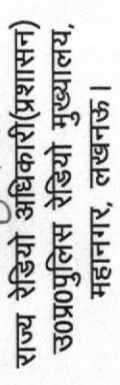 राज्य रेडियो अधिकारी(प्रशासन)
उ0प्र0पुलिस रेडियो मुख्यालय,
महानगर, लखनऊ।